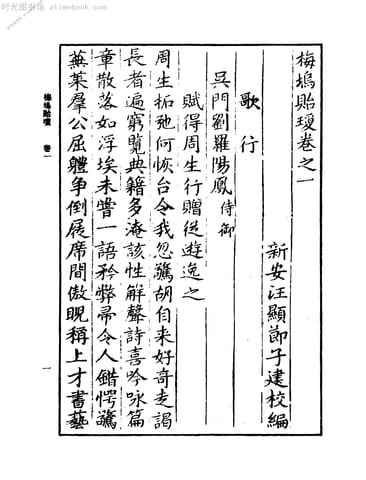 时光图书馆 · atimebook.com
梅塢貽瓊卷之一
新安汪顯節子建校編
歌行
吳門劉羅陽鳳侍御
賦得周生行贈從遊逸之
周生柘弛何恢台令我忽驚胡自来好奇走謁
長者遍窮覽典籍多淹該性解聲詩喜吟咏篇
章散落如浮埃未嘗一語矜弊帚令人錯愕驚
蕪萊羣公屈軆争倒屐席間傲睨稱上才書藝
梅塢貽瓊 卷一
一